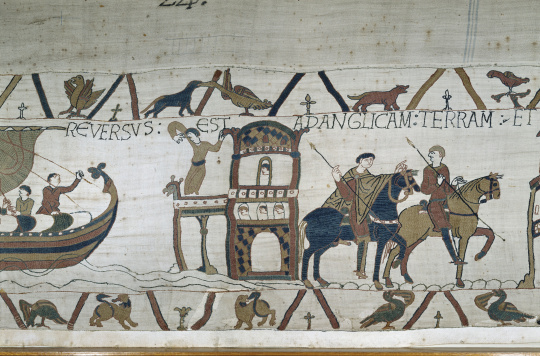 REVERSVS : EST AD ANGLICAM : TERRAM : ET